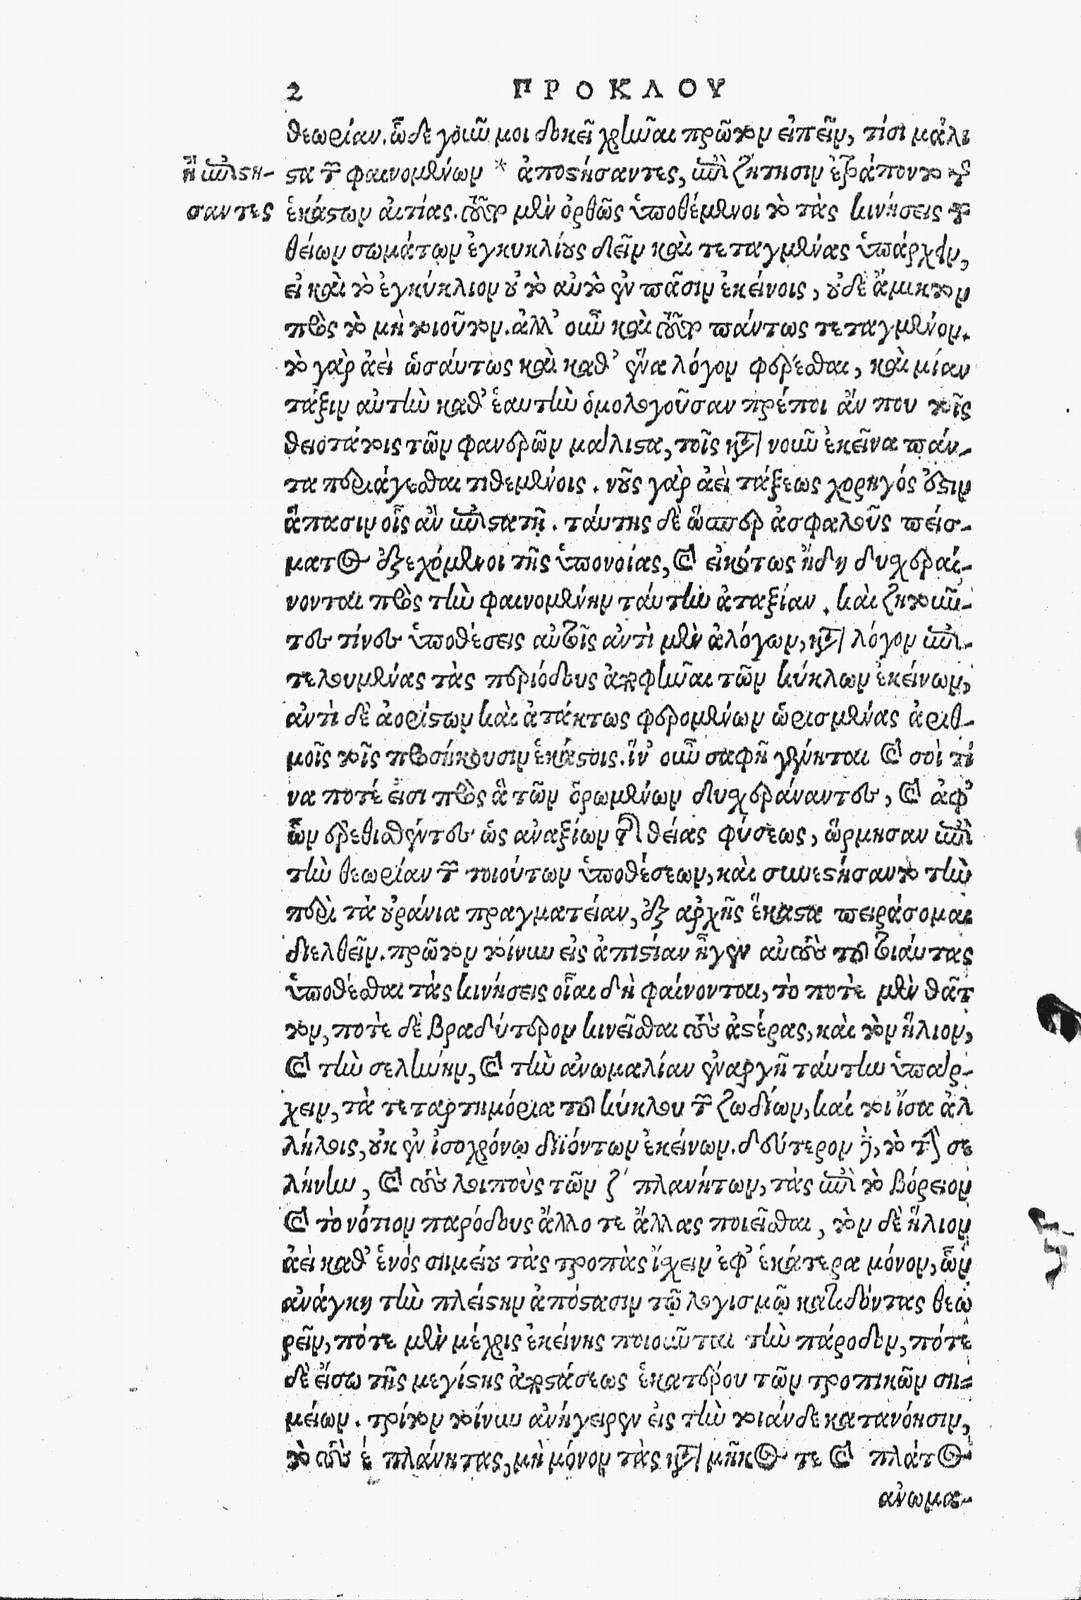 2 ΠΡΟΚΛΟΥ
θεωρίαν. ὧδε γοῦν μοι δοκεῖ χρῆναι πρῶτον εἰπεῖν, τίσι μάλι
ϛα τῶν φαινομένων * ἀποϛήσαντες, ἐπὶ ζήτησιν ἐτράποντο τῆς
ἢ ἐπιϛή-
σαντες
ἑκάϛων αἰτίας. τοὺς μὲν ὀρθῶς ὑποθέμενοι τὸ τὰς κινήσεις τῶν
θείων σωμάτων ἐγκυκλίους δεῖν καὶ τεταγμένας ὑπάρχειν,
εἰ καὶ τὸ ἐγκύκλιον οὐ τὸ αὐτὸ ἐν πᾶσιν ἐκείνοις, οὐδὲ ἄμικτον
πρὸς τὸ μὴ τοιοῦτον. ἀλλ' οὖν καὶ τοὺς πάντως τεταγμένον.
τὸ γὰρ ἀεὶ ὡσάυτως καὶ καθ' ἕνα λόγον φέρεσθαι, καὶ μίαν
τάξιν αὐτὴν καθ' ἑαυτὴν ὁμολογοῦσαν πρέποι ἄν που τοῖς
θειοτάτοις τῶν φανερῶν μάλιϛα, τοῖς κατὰ νοῦν ἐκεῖνα πάν-
τα περιάγεσθαι τιθεμένοις. νοῦς γὰρ ἀεὶ τάξεως χορηγός ἐϛιν
ἅπασιν οἷς ἂν ἐπιϛατῇ. τάυτης δὲ ὥσπερ ἀσφαλοῦς πείσ-
ματος ἐξεχόμενοι τῆς ὑπονοίας, καὶ εἰκότως ἤδη δυσχεραί-
νονται πρὸς τὴν φαινομένην τάυτην ἀταξίαν. καὶ ζητοῦν-
τες τίνες ὑποθέσεις αὐτοῖς ἀντὶ μὲν ἀλόγων, κατὰ λόγον ἐπι-
τελουμένας τὰς περιόδους ἀποφῆναι τῶν κύκλων ἐκείνων,
ἀντὶ δὲ ἀορίϛων καὶ ἀτάκτως φερομένων ὡρισμένας ἀριθ-
μοῖς τοῖς προσήκουσιν ἑκάϛοις. ἵν' οὖν σαφῆ γένηται καὶ σοὶ τί
να ποτέ εἰσι πρὸς ἃ τῶν ὁρωμένων δυσχεράναντες, καὶ ἀφ'
ὧν ἐρεθισθέντες ὡς ἀναξίων τῆς θείας φύσεως, ὥρμησαν ἐπὶ
τὴν θεωρίαν τῶν τοιούτων ὑποθέσεων, καὶ συνεϛήσαντο τὴν
περὶ τὰ οὐράνια πραγματείαν, ἐξ ἀρχῆς ἕκαϛα πειράσομαι
διελθεῖν. πρῶτον τοίνυν εἰς ἀπιϛίαν ἦγεν αὐτοὺς τοῦ τοιάυτας
ὑποθέσθαι τὰς κινήσεις οἷαι δὴ φαίνονται, τὸ ποτὲ μὲν θᾶτ
τον, ποτὲ δὲ βραδύτερον κινεῖσθαι τοὺς ἀϛέρας, καὶ τὸν ἥλιον,
καὶ τὴν σελήνην, καὶ τὴν ἀνωμαλίαν ἐναργῆ τάυτην ὑπάρ-
χειν, τὰ τεταρτημόρια τοῦ κύκλου τῶν ζωδίων, καί τοι ἴσα ἀλ
λήλοις, οὐκ ἐν ἰσοχρόνῳ διϊόντων ἐκείνων. δεύτερον δὲ, τὸ τὴν σε
λήνην, καὶ τοὺς λοιποὺς τῶν ζ' πλανήτων, τὰς ἐπὶ τὸ βόρειον
καὶ τὸ νότιον παρόδους ἄλλοτε ἄλλας ποιεῖσθαι, τὸν δὲ ἥλιον
ἀεὶ καθ' ἑνὸς σημείου τὰς τροπὰς ἴσχειν ἐφ' ἑκάτερα μόνον, ὧν
ἀνάγκη τὴν πλείϛην ἀπόϛασιν τῷ λογισμῷ κατιδόντας θεω
ρεῖν, πότε μὲν μέχρις ἐκείνης ποιοῦνται τὴν πάροδον, πότε
δὲ εἴσω τῆς μεγίϛης ἀποϛάσεως ἑκατέρου τῶν τροπικῶν ση-
μείων. τρίτον τοίνυν ἀνήγειρεν εἰς τὴν τοιάνδε κατανόησιν,
τὸ τοὺς ε̄ πλάνητας, μὴ μόνον τὰς κατὰ μῆκος τε καὶ πλάτος
ἀνωμα-